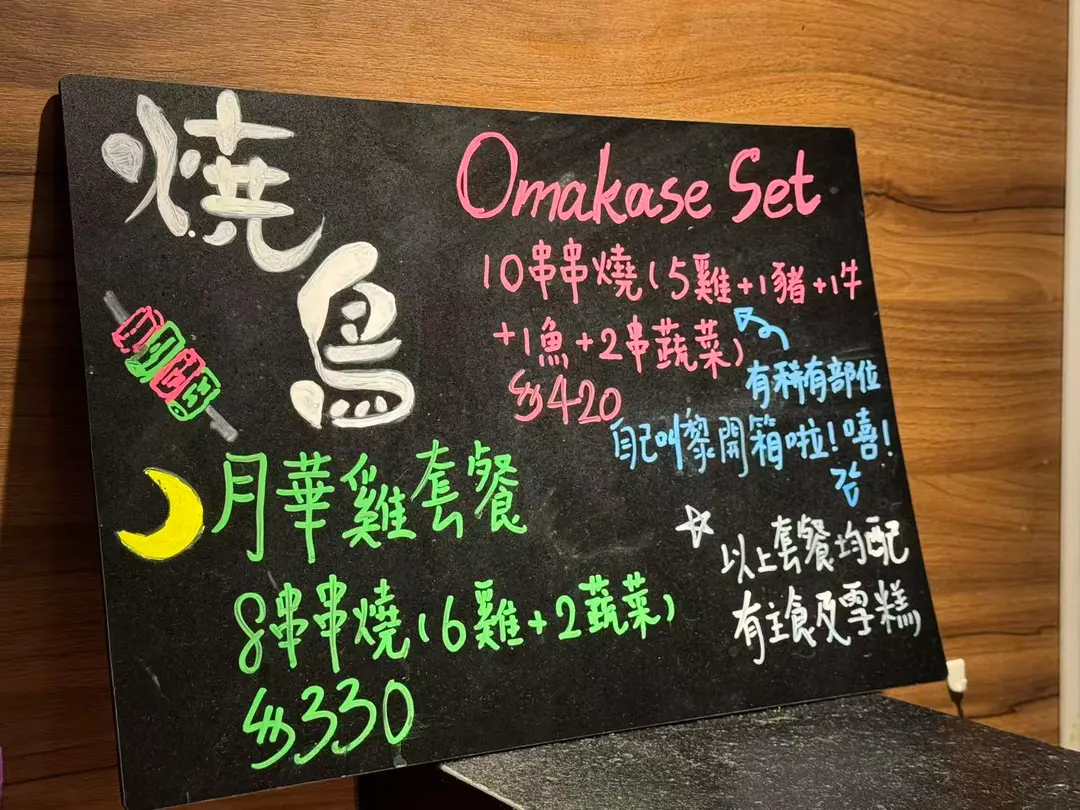 燒鳥
Omakase Set
10串串燒(5雞+1豬+1牛
+1魚+2串蔬菜)
$420
有稀有部位
自己叫黎開箱啦!嘻!
月華雞套餐
8串串燒(6雞+2蔬菜)
$330
☆以上套餐均配
有主食及雪糕